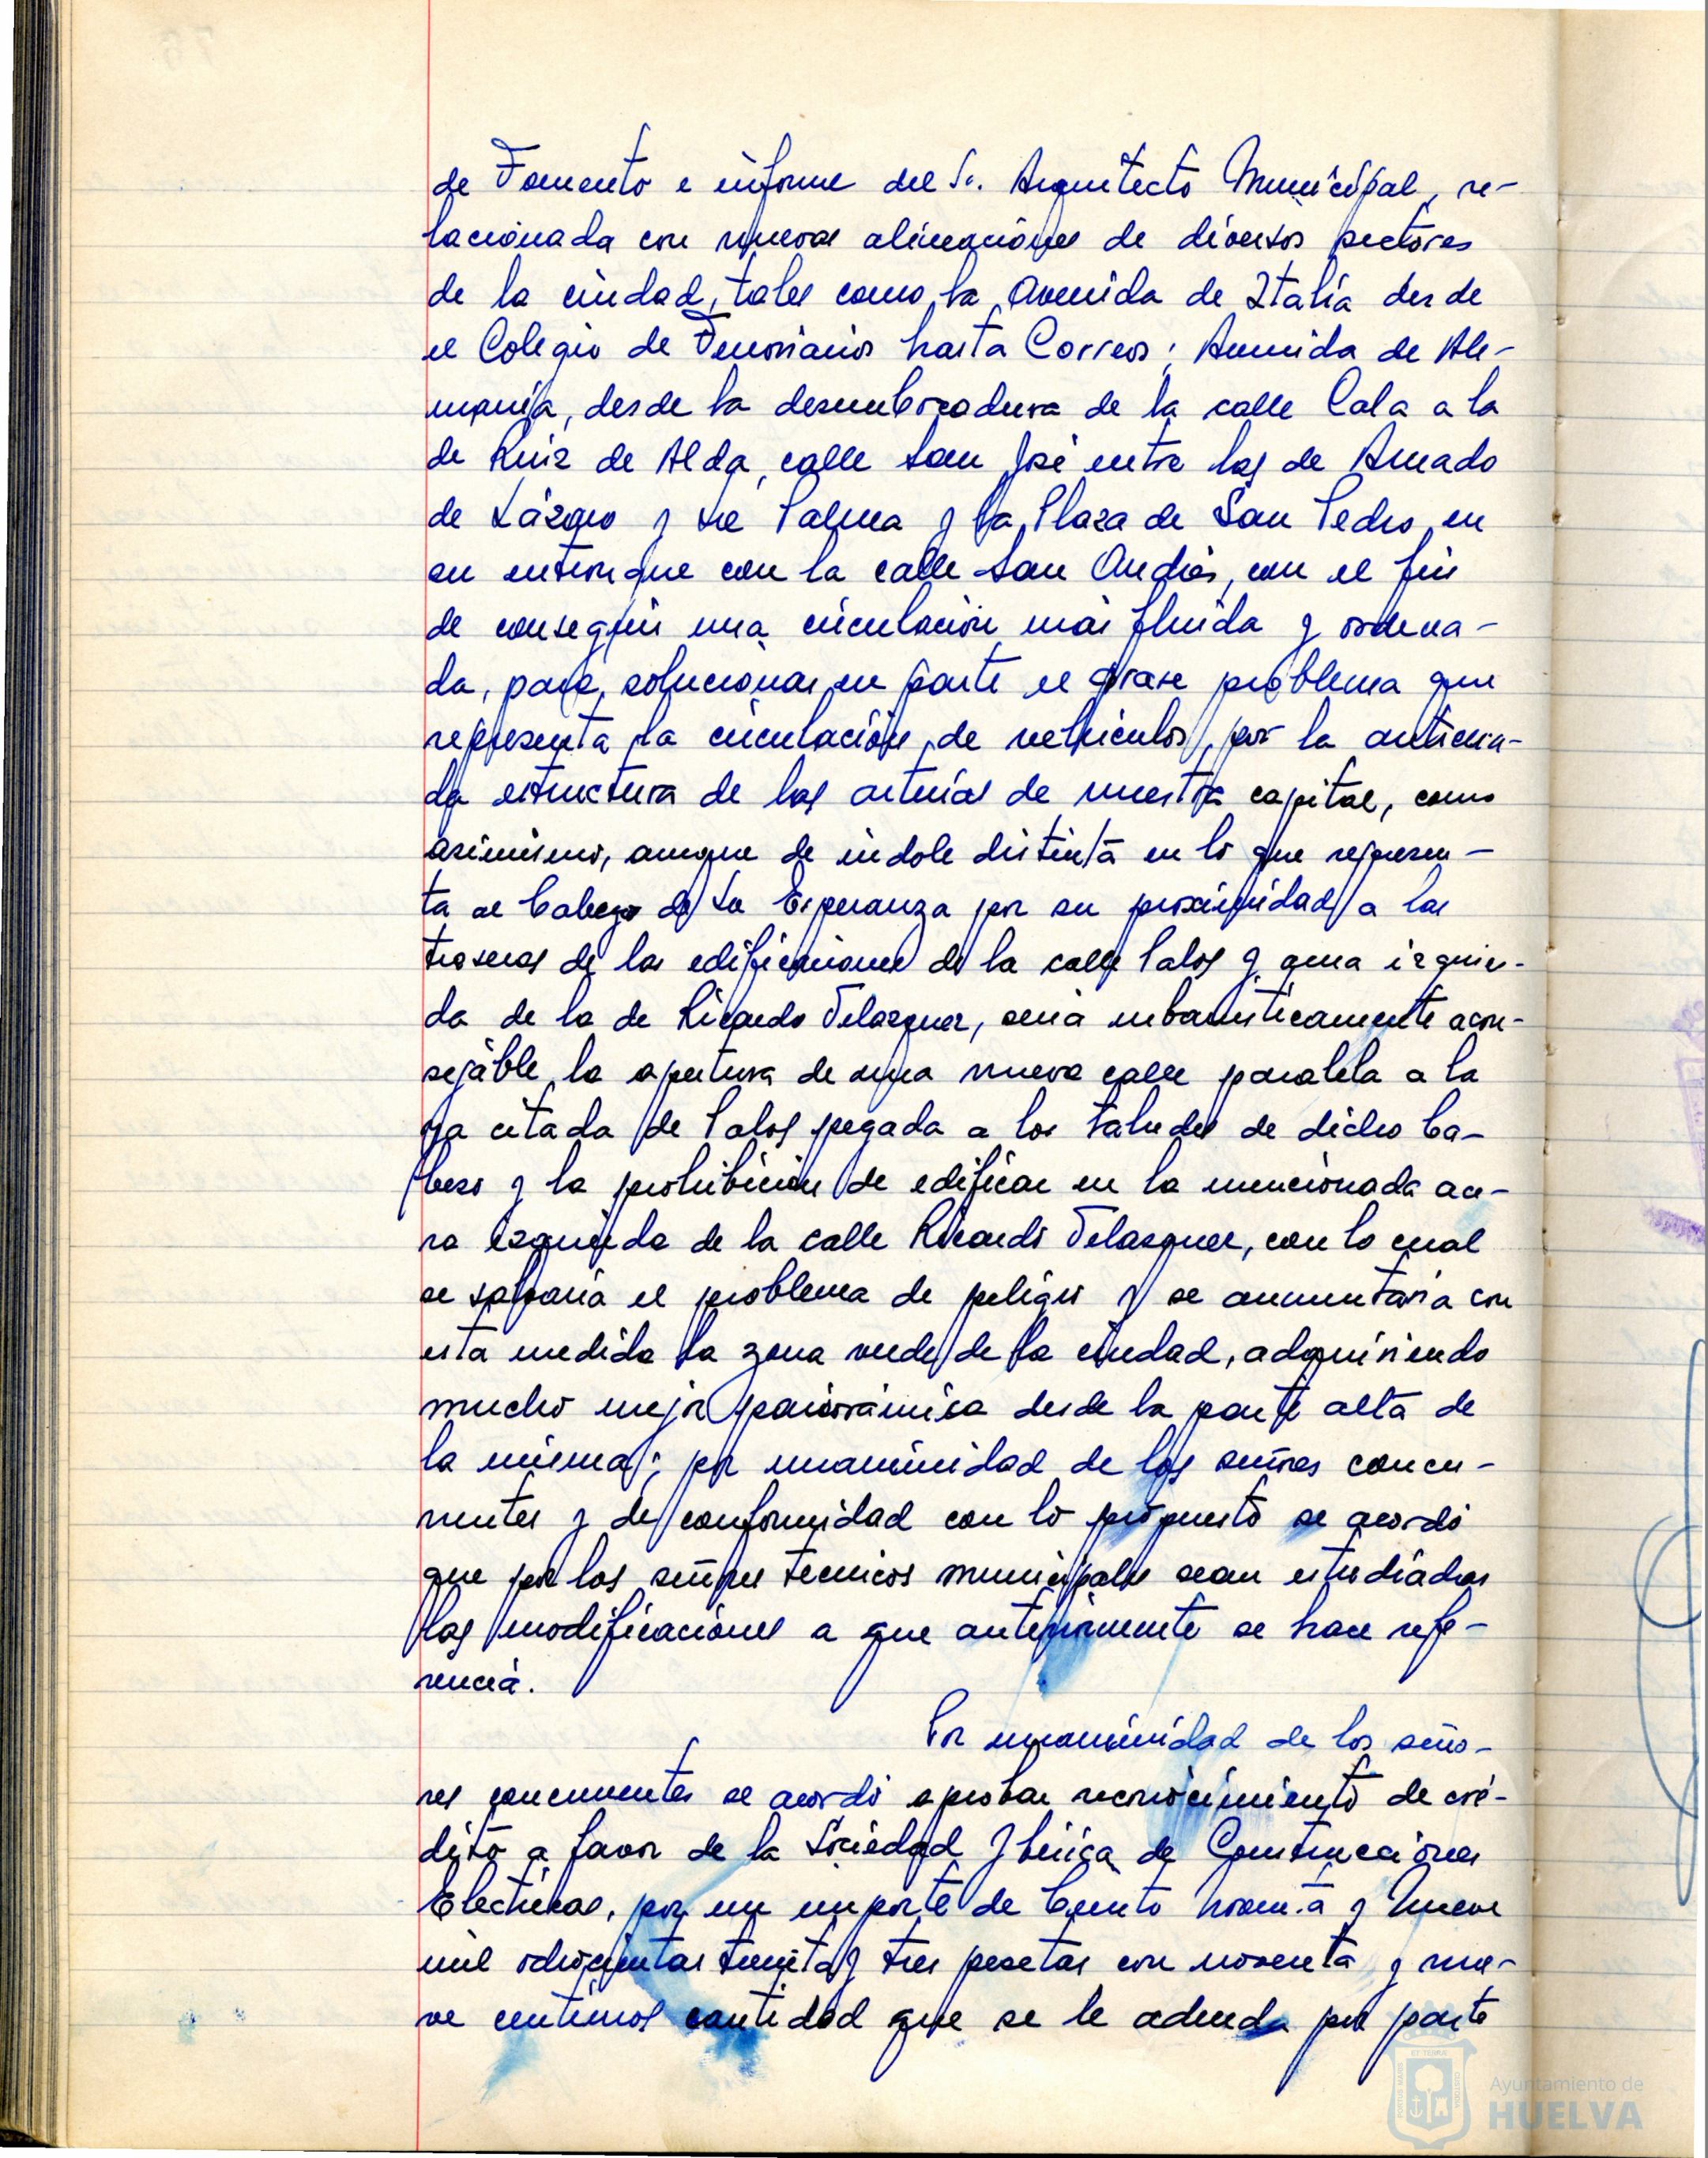 de Fomento e informe del Sr. Arquitecto Municipal, re-
lacionada con nuevas alineaciones de diversos sectores
de la ciudad, tales como la Avenida de Italia desde
el Colegio de Ferroviarios hasta Correos; Avenida de Ale-
mania, desde la desembocadura de la calle Cala a la
de Ruiz de Alda, calle San José entre las de Amado
de Lázaro y La Palma y la Plaza de San Pedro en
su entronque con la calle San Andrés, con el fin
de conseguir una circulación más fluida y ordena-
da, para solucionar en parte el grave problema que
representa la circulación de vehiculos, por la anticua-
da estructura de las arterias de nuestra capital, como
asimismo, aunque de indole distinta en lo que represen-
ta al Cabezo de La Esperanza por su proximidad a las
traseras de las edificaciones de la calle Palos y acera izquier-
da de la de Ricardo Velazquez, seria urbanisticamente acon-
sejable la apertura de una nueva calle paralela a la
ya citada de Palos pegada a los taludes de dicho Ca-
bezo y la prohibición de edificar en la mencionada ace-
ra izquierda de la calle Ricardo Velazquez, con lo cual
se salvaria el problema de peligro y se aumentaria con
esta medida la zona verde de la ciudad, adquiriendo
mucho mejor panorámica desde la parte alta de
la misma; por unanimidad de los señores concu-
rrentes y de conformidad con lo propuesto se acordó
que por los señores tecnicos municipales sean estudiadas
las modificaciones a que anteriormente se hace refe-
rencia.
Por unanimidad de los seño-
res concurrentes se acordó aprobar reconocimiento de cré-
dito a favor de la Sociedad Iberica de Construcciones
Electricas, por un importe de Ciento noventa y nueve
mil ochocientas treinta y tres pesetas con noventa y nue-
ve centimos cantidad que se le adeuda por parte
Ayuntamiento de
HUELVA